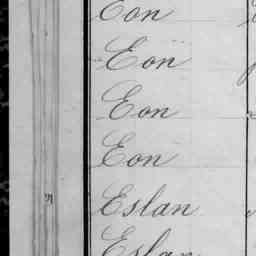 Eon
Eon
Eon
Eon
Eslan
Eslan